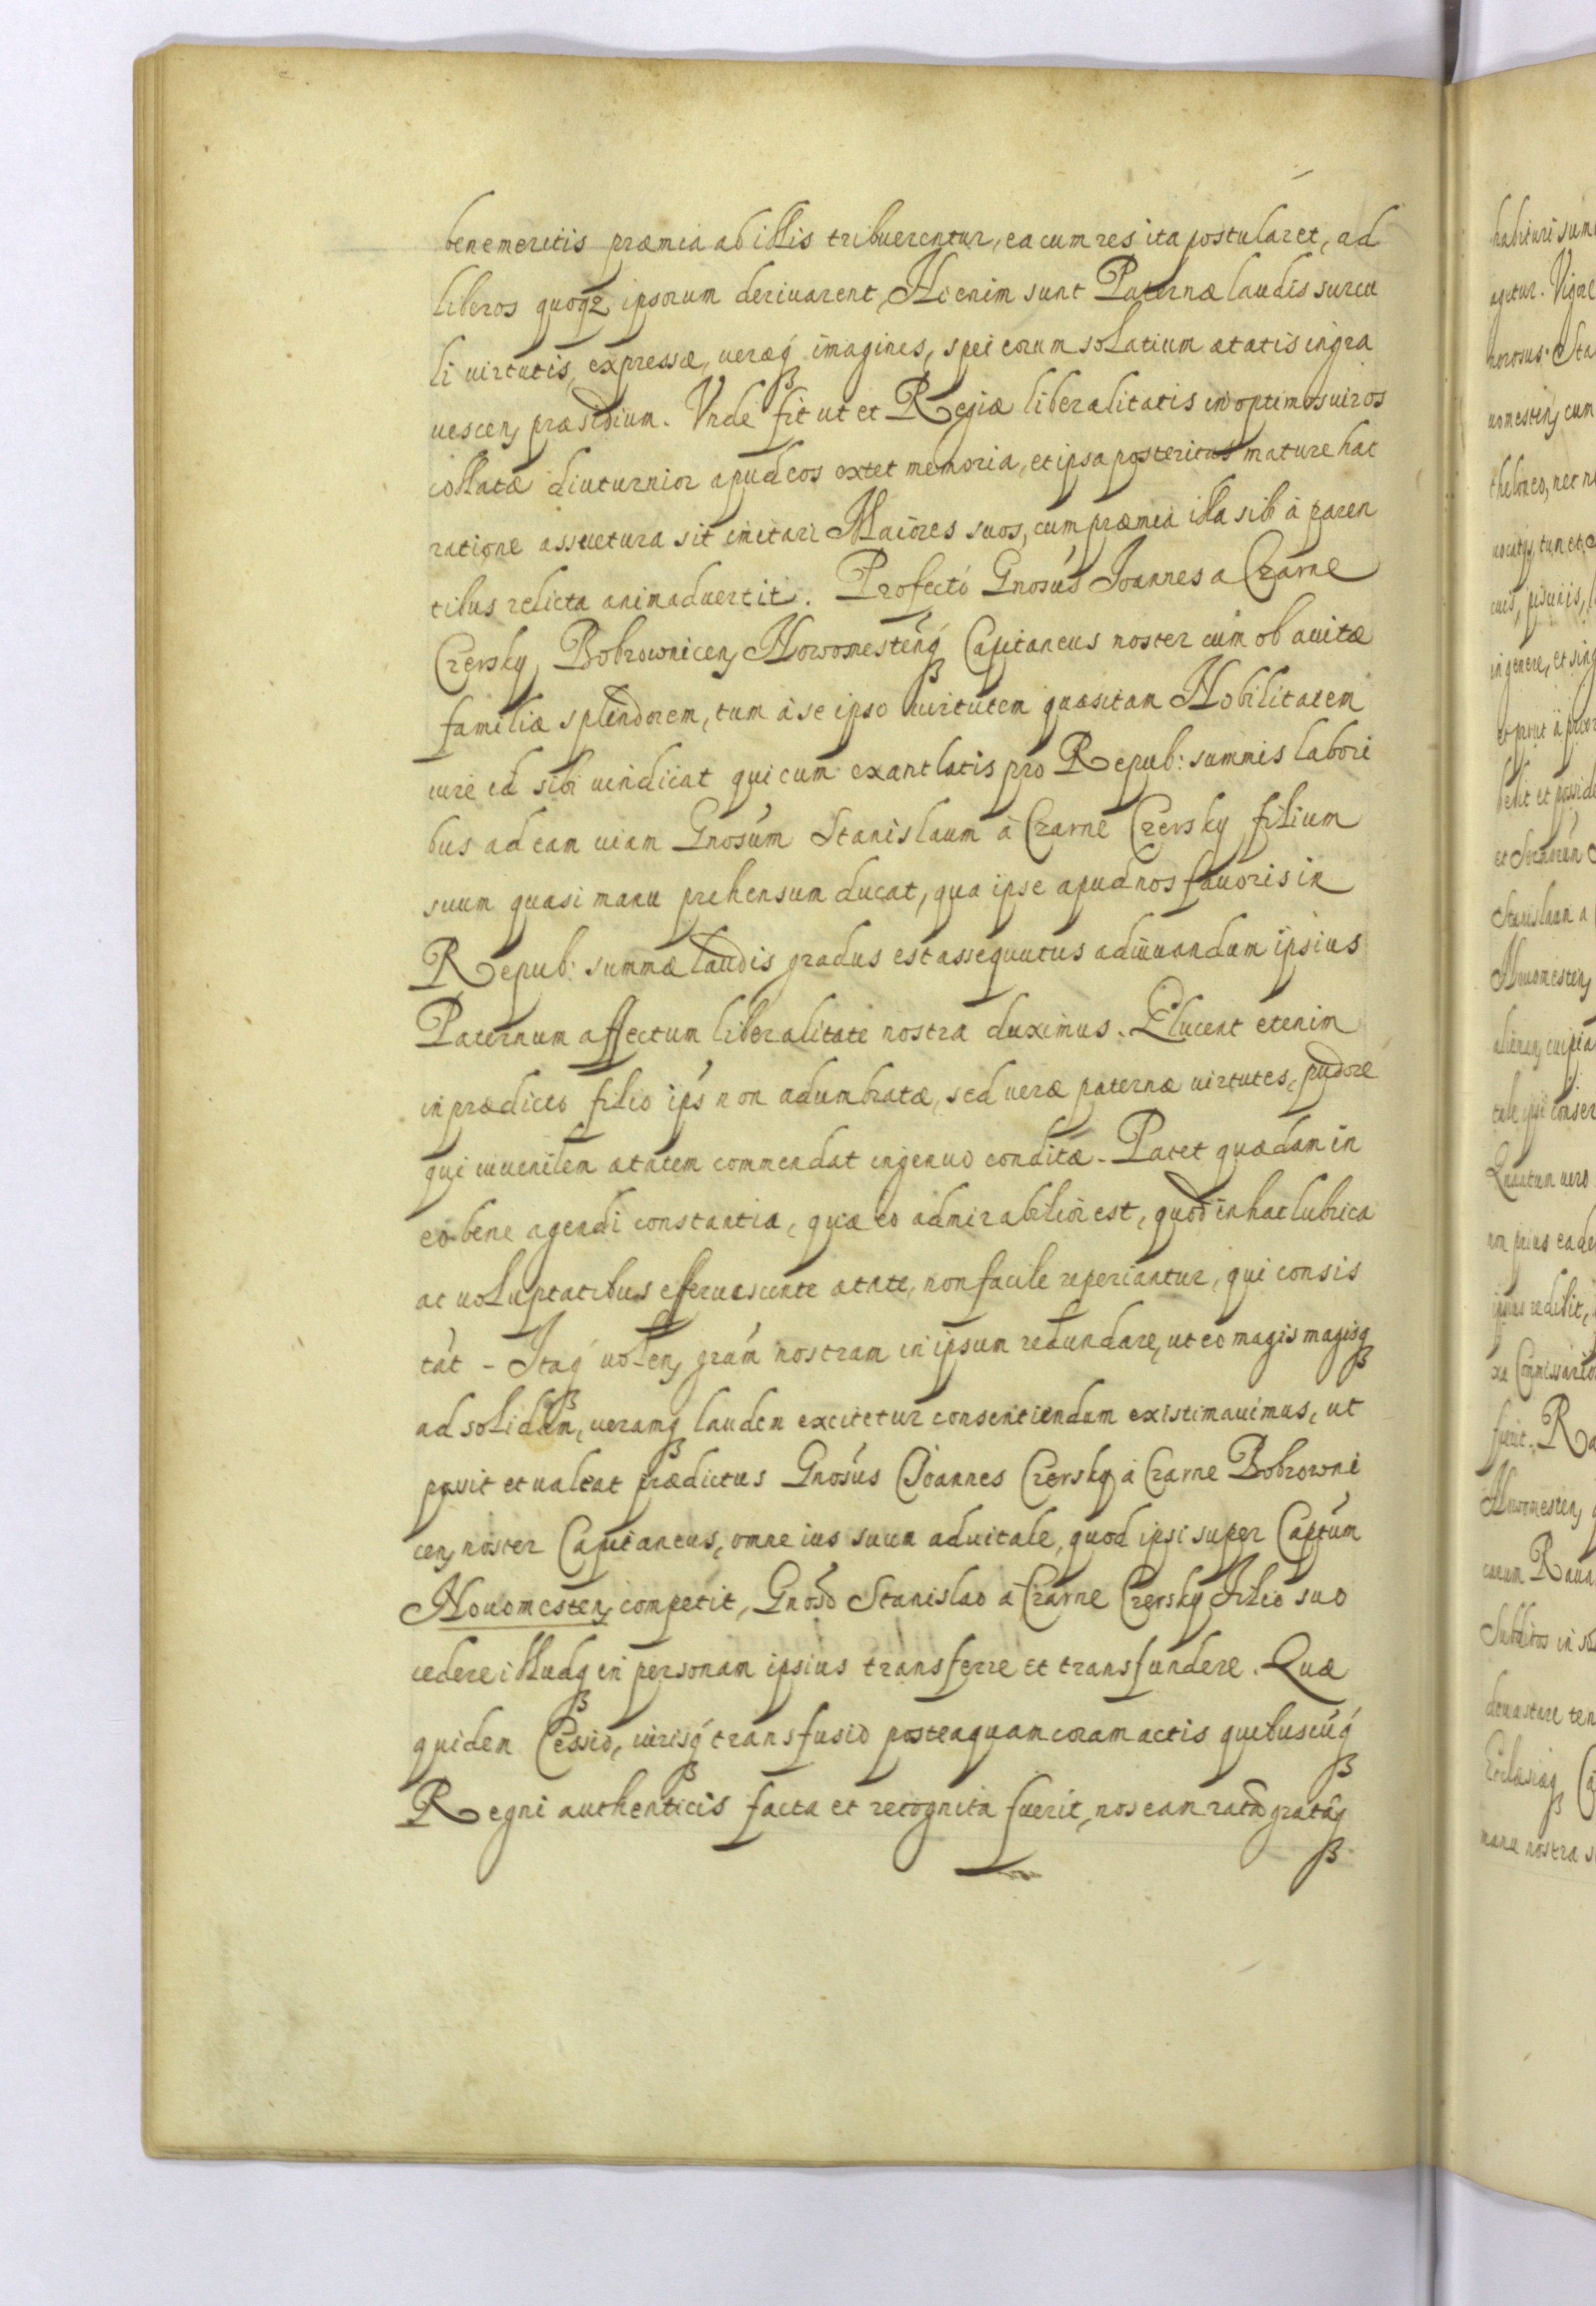 benemeritis præmia ab illis tribuerentur, ea cum res ita postularet, ad
liberos quoqz ipsorum deriuarent, Hi enim sunt Paternæ laudis surcu
li uirtutis, expressæ, ueræq imagines, spei eorum solatium ætatis ingra
uescen, præsidium. Vnde fit ut et Regiæ liberalitatis in optimos uiros
collatæ diuturnior apud eos extet memoria, et ipsa posteritas mature hac
ratione assuetura sit imitari Maiores suos, cum præmia illa sib à paren
tibus relicta animaduertit. Profectó Gnosús Joannes a Czarne
Czersky Bobrownicen, Nowomesténq Capitaneus noster cúm ob auitæ
familiæ splendorem, tum à se ipso uirtutem quæsitam Nobilitatem
iure id sibi uindicat qui cum exantlatis pro Repub: summis labori
bus ad eam uiam Gnosúm Stanislaum à Czarne Czersky filium
suum quasi manu prehensum ducat, qua ipse apud nos fauoris in
Repub: summæ laudis gradus est assequutus adiuuandum ipsius
Paternum affectum liberalitate nostra duximus. Elucent etenim
in prædicto filio ips non adumbratæ, sed ueræ paternæ uirtutes, pudore
qui iuuenilem ætatem commendat ingenuo conditæ. Patet quædam in
eo bene agendi constantia, quæ eo admirabilior est, quod in hac lubrica
ac uoluptatibus efferuescente ætate, non facile reperiantur, qui consis
tát. Itaq uolen, grám nostram in ipsum redundare, ut eo magis magisq
ad solidam, ueramq laudem excitetur consentiendum existimauimus, ut
possit et ualeat prædictus Gnosús Joannes Czersky à Czarne Bobrowni
cen, noster Capitaneus, omne ius suum aduitale, quod ipsi super Captúm
Nouomesten, competit, Gnóso Stanislao à Czarne Czersky Filio suo
cedere illudq in personam ipsius transferre et transfundere. Quæ
quidem Cessio, iurisq transfusio posteaquam coram actis quibuscúq
Regni authenticis facta et recognita fuerit, nos eam ratā gratāq